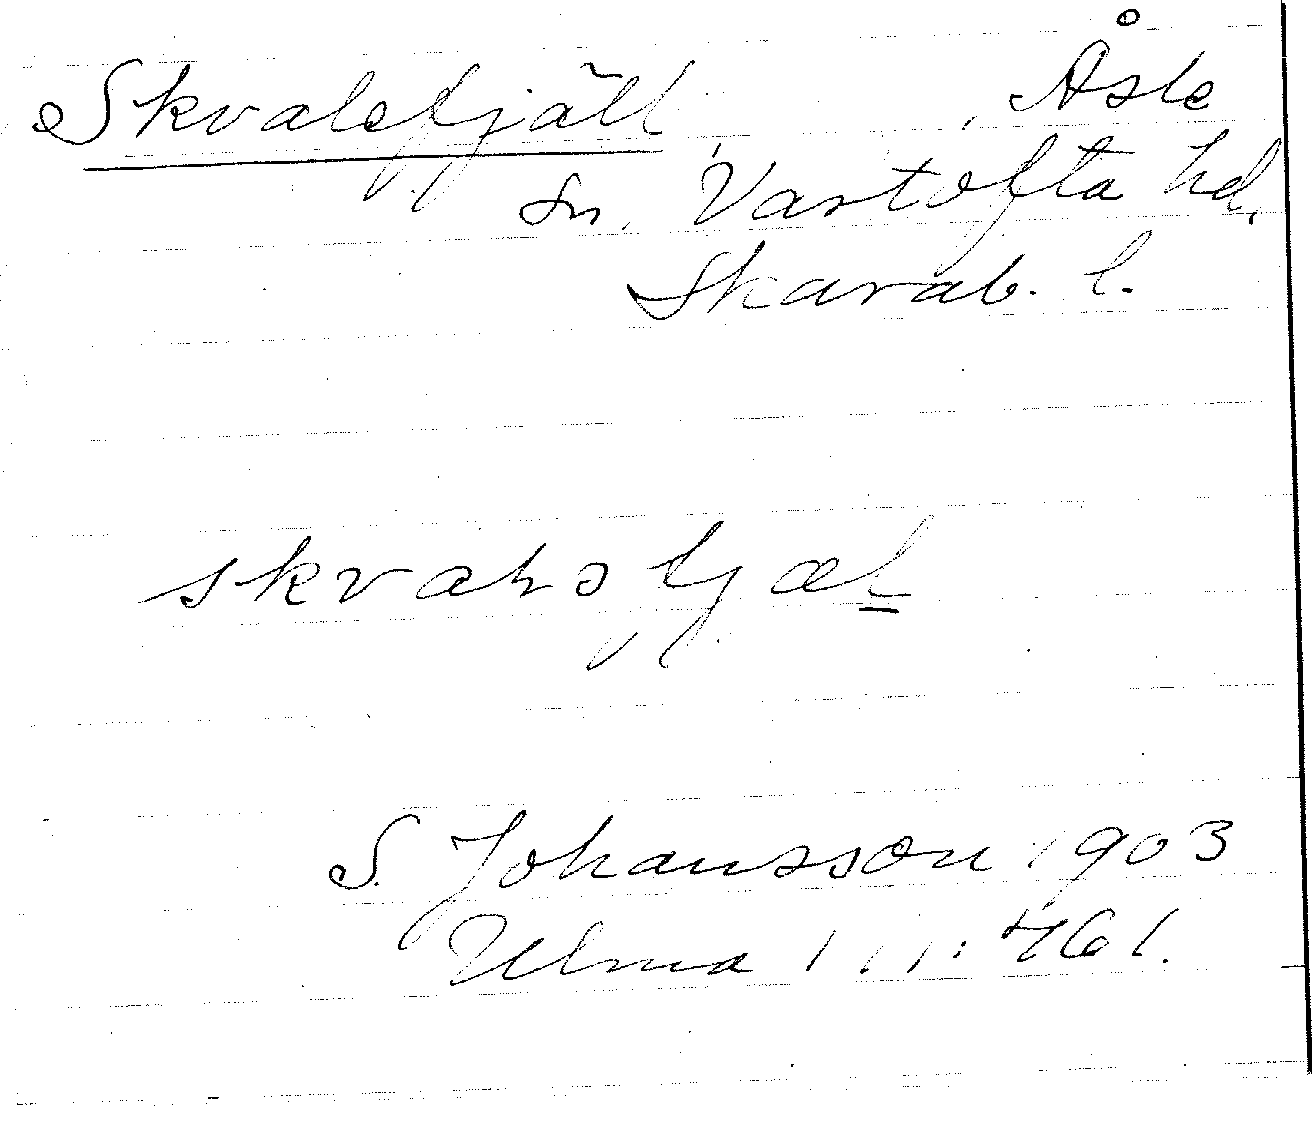 Skvalefjäll, Åsle
sn, Vartofta hd,
Skarab. l.
S. Johansson 1903
Ulma 111:461.